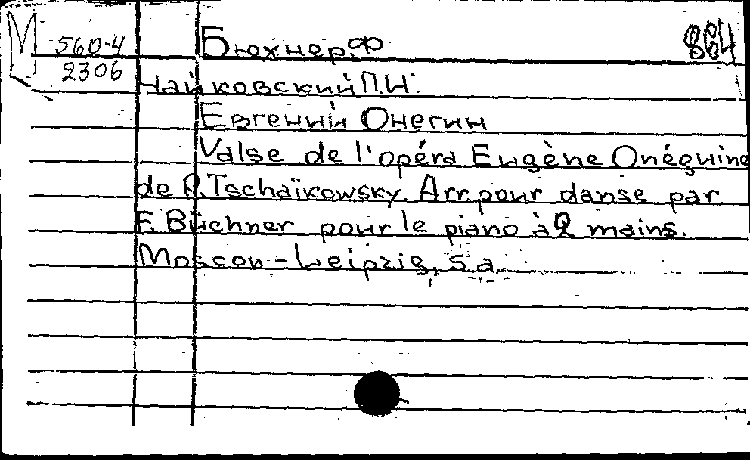 М 560-4 Бюхнер Ф 884
2306 Чайковский П.И.
Евгений Онегин
Valse de l'opéra Eugène Onéguine
de P. Tschaïkowsky. Arr. pour danse par
F. Büchner pour le piano à 2 mains.
Moscou - Leipzig, s.a.